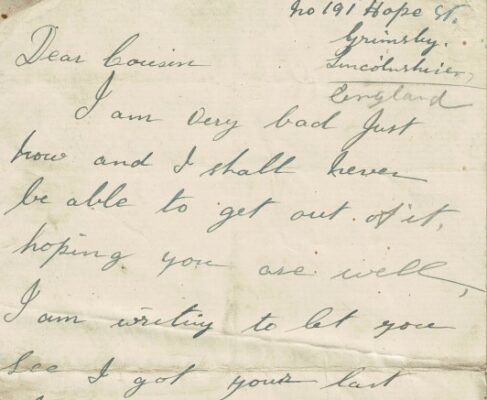 no 191 Hope St.
Grimsby.
Lincolnshier,
England
Dear Cousin
I am very bad Just
now and I shall never
be able to get out of it,
hoping you are well,
I am writing to let you
see I got your last